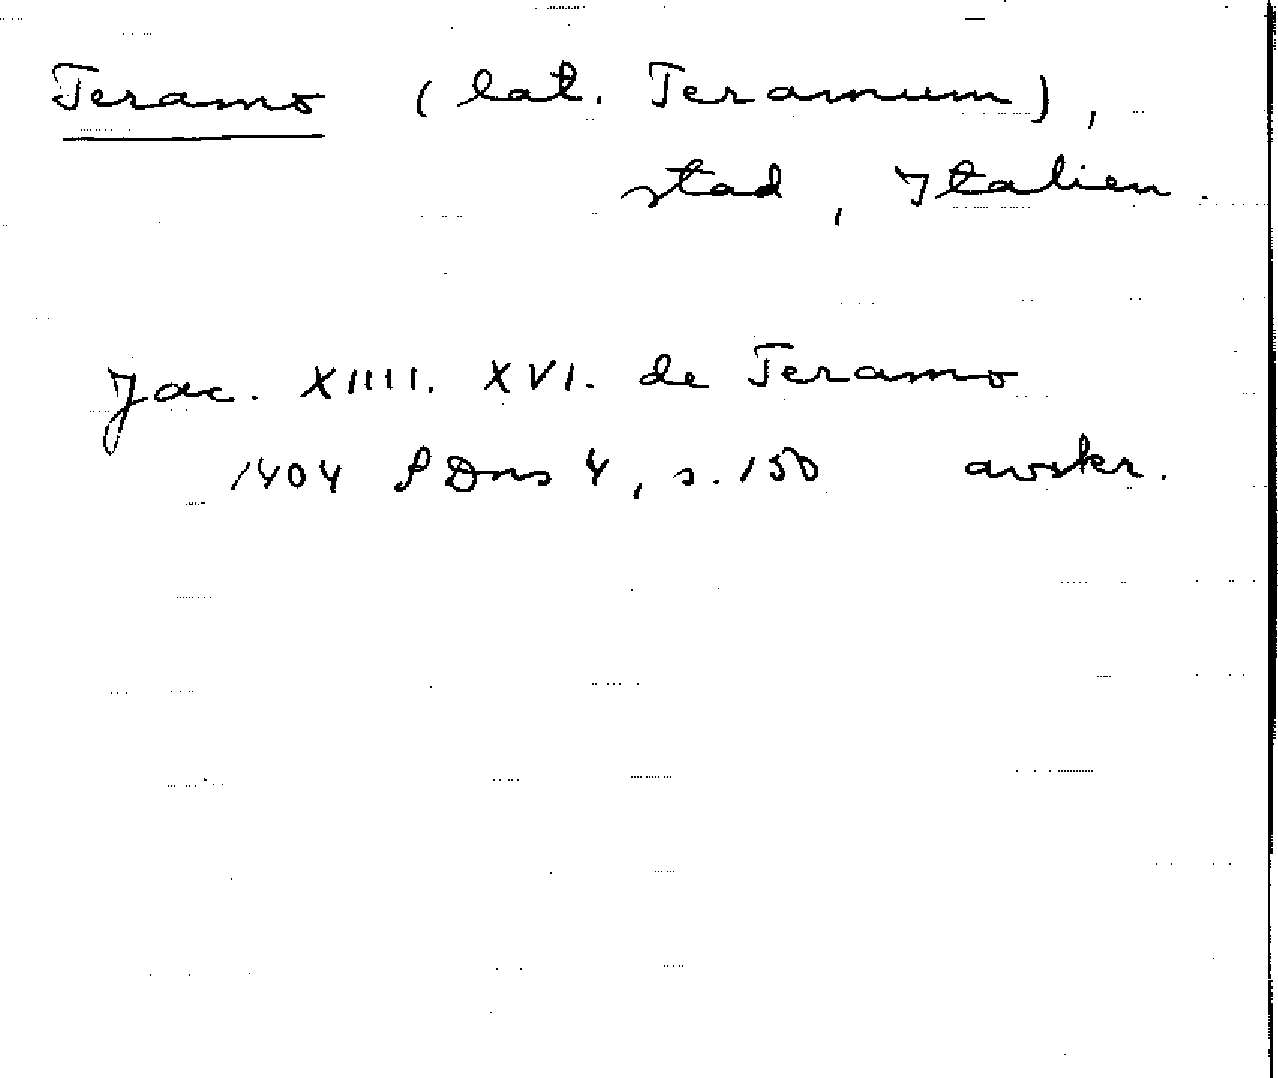 Teramo (lat. Teramum),
stad, Italien.
Jac. XIIII. XVI. de Teramo
1404 PDns 4, s. 150 avskr.